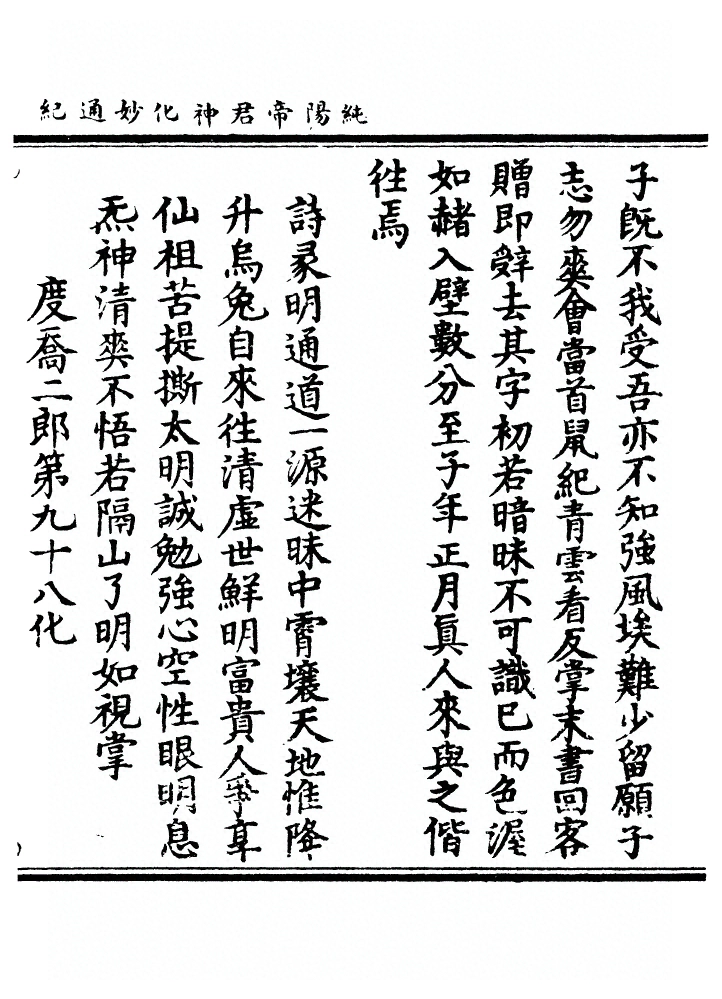 純陽帝君神化妙通紀
子既不我受吾亦不知強風埃難少留願子
志勿爽會當首鼠紀青雲看反掌末書回客
贈即辤去其字初若暗昧不可識已而色渥
如赭入壁數分至子年正月眞人來與之偕
徃焉
詩彖明通道一源迷昧中霄壤天地惟降
升烏兔自來徃清虛世鮮明富貴人爭享
仙祖苦提撕太明誠勉強心空性眼明息
炁神清爽不悟若隔山了明如視掌
度喬二郎第九十八化